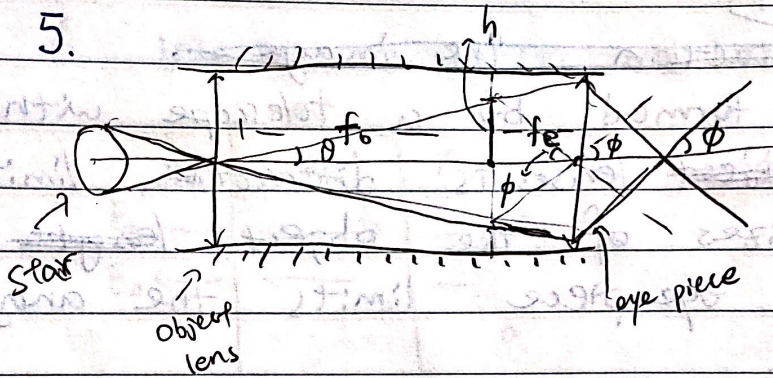 5.
h
fo
fe
θ
φ
φ
φ
Star
object
lens
eye piece